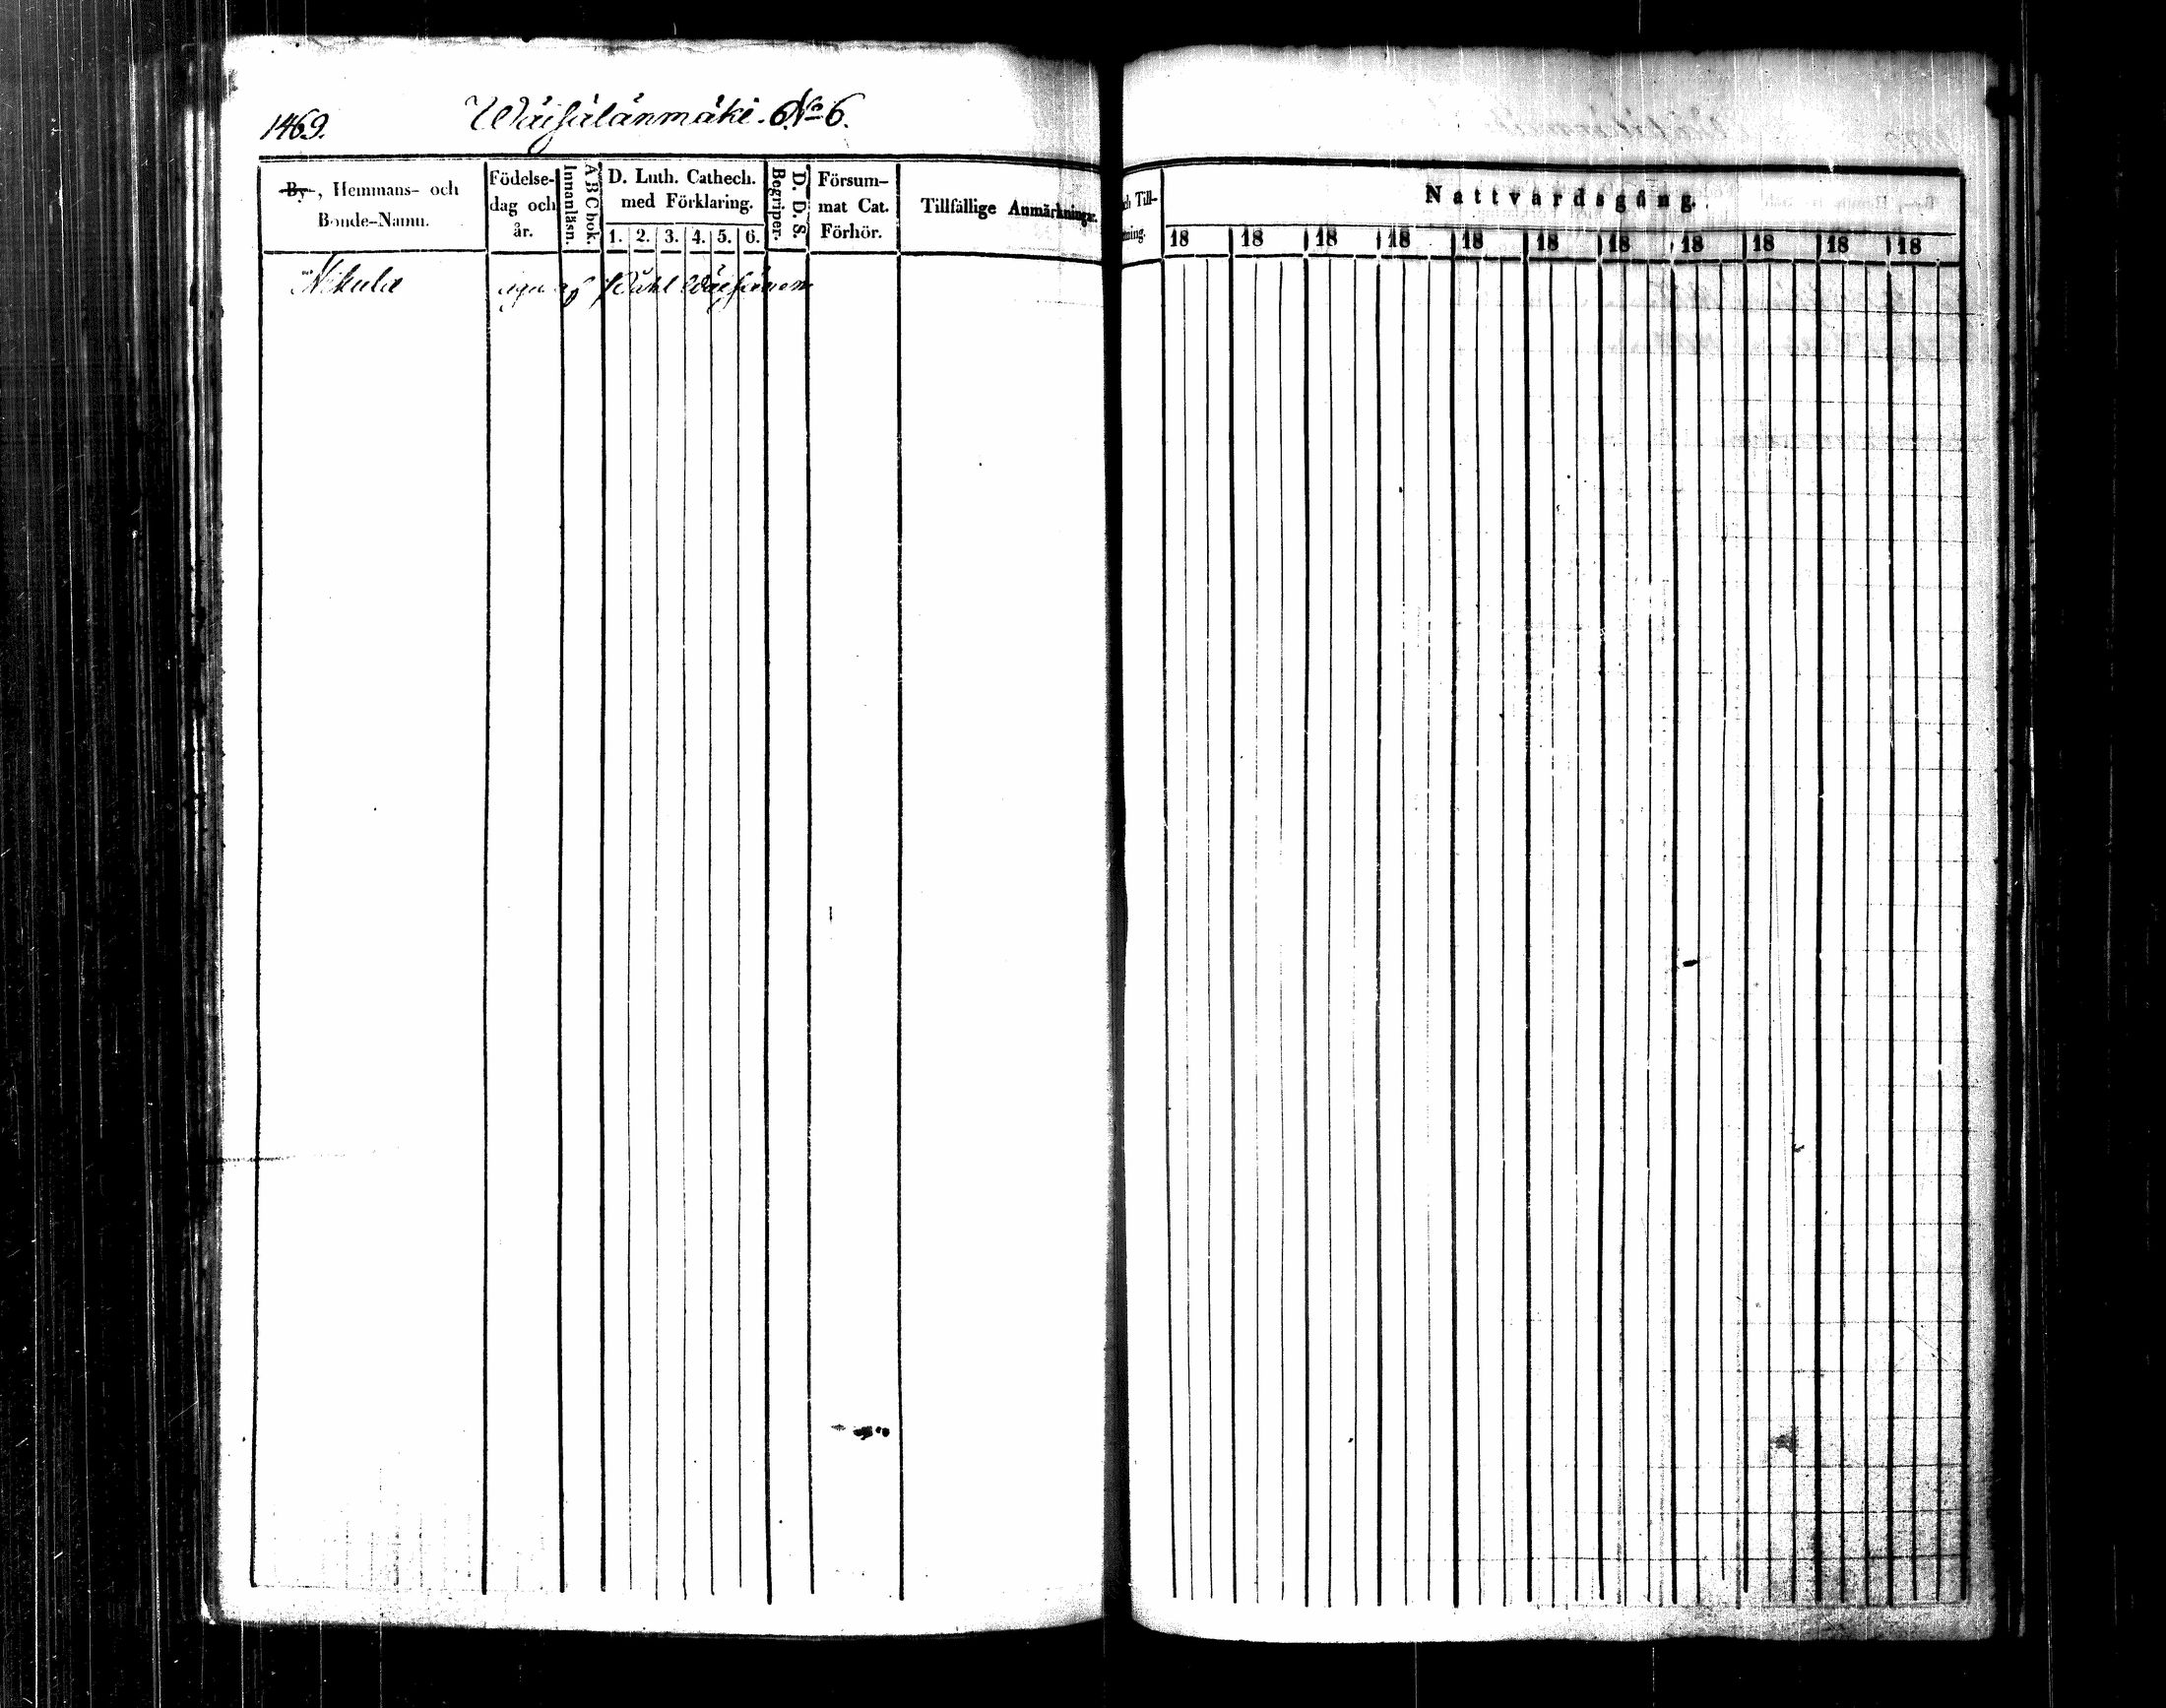 1469.
Wäisälänmäki. 6. No 6.
By-, Hemmans- och
Bonde-Namn.
Födelse-
dag och
år.
Innanläsn.
A B C bok.
D. Luth. Cathech.
med Förklaring.
1. 2. 3. 4. 5. 6.
Begriper.
D. D. S.
Försum-
mat Cat.
Förhör.
Tillfällige Anmärkningar.
Nikula äges af Påhl Wäisänen
ch Till-
tning.
Nattvardsgång.
18 18 18 18 18 18 18 18 18 18 18